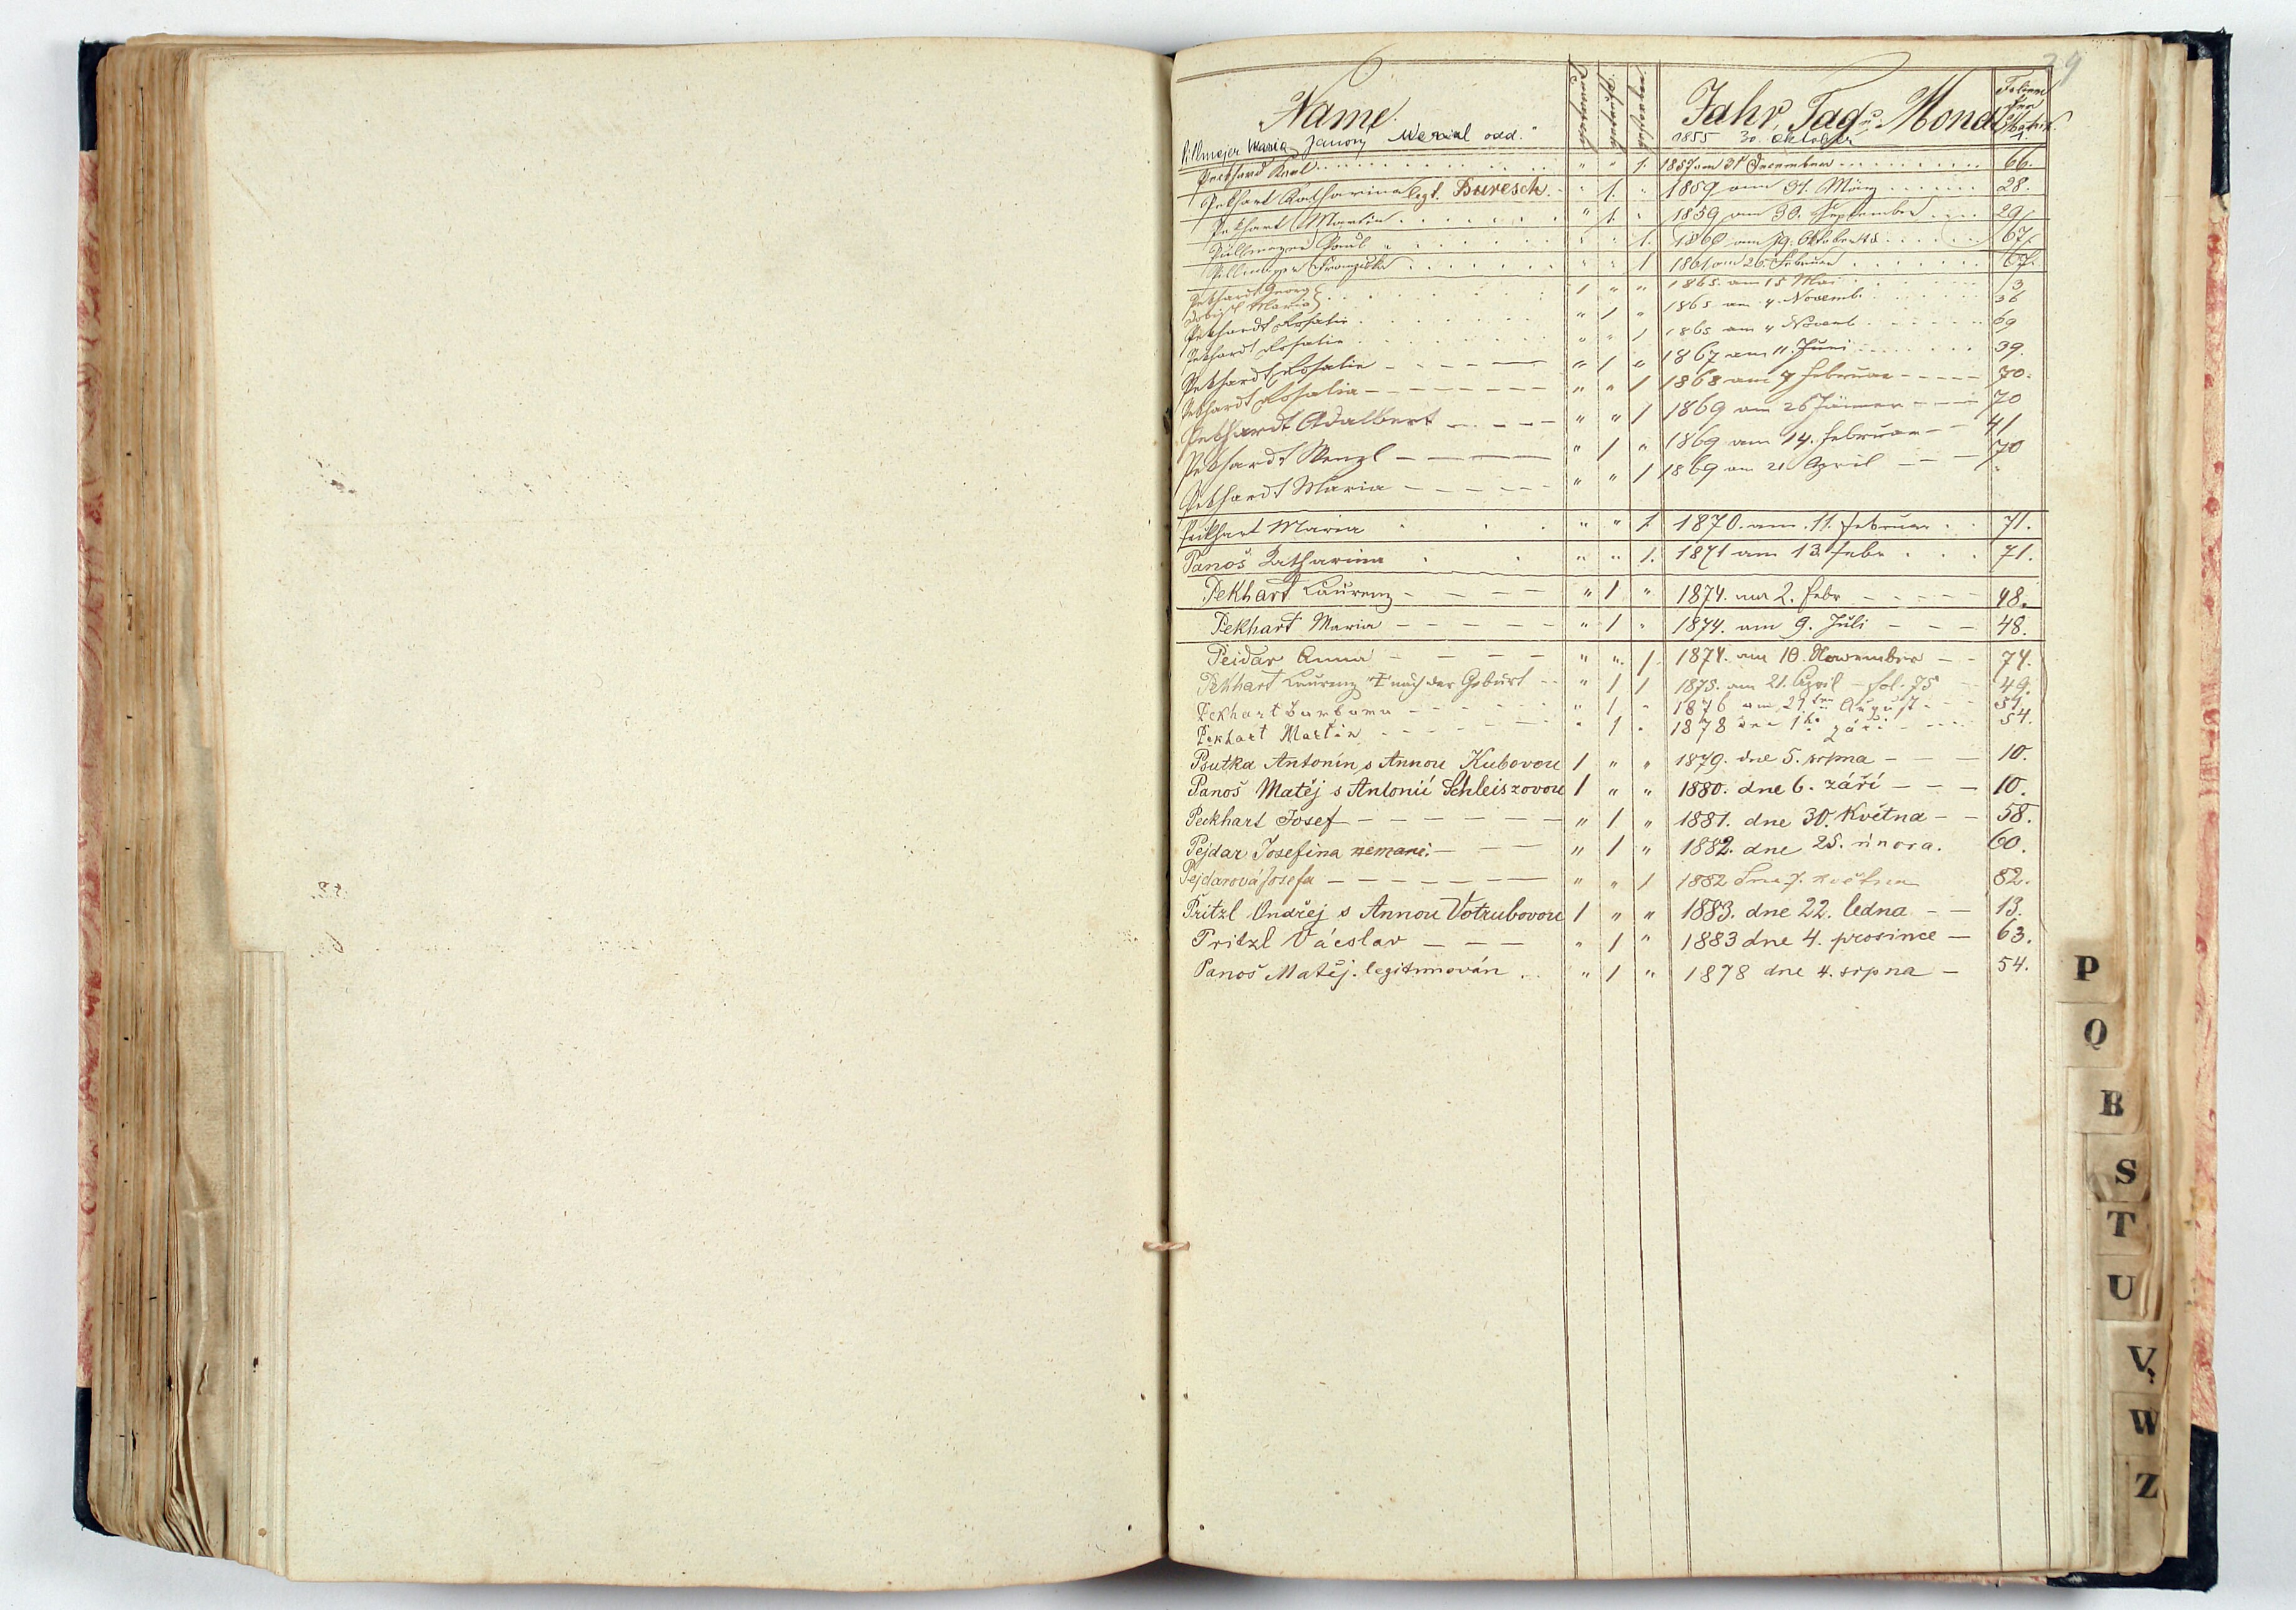 29
Name. getraut getauft gestorben Jahr, Tag u. Monat Folium der Matrik.
Pillmajer Maria Janoný odd. " 1855 30. Oktober 1.
Peckhard Karl " " 1. 1857 am 31 December 66.
Pekhart Katharina legt. Buresch. " 1. " 1859 am 31. März 28.
Pekhart Martin " 1. " 1859 am 30. September 29.
Püllmeyer Paul " " 1. 1860 am 19. Oktober 67.
Pillmeyer Franziska " " 1 1861 am 26. Februar 67.
Pekhardt Georg 1 " " 1865 am 15 Mai 3
Maria
Pekhardt Rosalie " 1 " 1865 am 4. Novemb. 36
Pekhardt Rosalie " " 1 1865 am 4 Novemb 69
Pekhardt Rosalie " 1 " 1867 am 11. Juni 39.
Pekhardt Rosalia " " 1 1868 am 7 Februar 70.
Pekhardt Adalbert " " 1 1869 am 26 Jänner 70
Pekhardt Wenzl " 1 " 1869 am 14. Februar 41
Pekhardt Maria " " 1 1869 am 21 April 70
Peckhart Maria " " 1. 1870. am 11. Februar 71.
Panoš Katharina " " 1. 1871 am 13. Febr 71.
Pekhart Laurenz " 1 " 1874. am 2. Febr 48.
Pekhart Maria " 1 " 1874. am 9. Juli 48.
Peidar Anna " " 1. 1874. am 10. November 74.
Pekhart Laurenz † nach der Geburt " 1 1 1875. am 21. April fol. 75 49.
Pekhart Barbara " 1 " 1876 am 21ten August 51.
Pekhart Martin " 1 " 1878 dne 1ho září 54.
Psutka Antonín s Annou Kubovou 1 " " 1879. dne 5. srpna 10.
Panoš Matěj s Antonií Schleiszovou 1 " " 1880. dne 6. září 10.
Peckhart Josef " 1 " 1881. dne 30. Května 58.
Pejdar Josefina nemanž. " 1 " 1882. dne 25. února. 60.
Pejdarová Josefa " " 1 1882 dne 7. května 82.
Pritzl Ondřej s Annou Votrubovou 1 " " 1883. dne 22. ledna 13.
Pritzl Václav " 1 " 1883 dne 4. prosince 63.
Panoš Matěj. legitimován " 1 " 1878 dne 4. srpna 54.
P
Q
R
S
T
U
V
W
Z